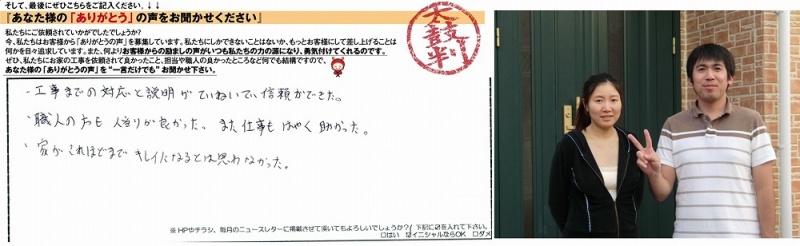 そして、最後にぜひこちらをご記入ください。↓↓
『あなた様の「ありがとう」の声をお聞かせください』
私たちにご依頼されていかがでしたでしょうか?
今、私たちはお客様から「ありがとうの声」を募集しています。私たちにしかできないことはないか、もっとお客様にして差し上げることは
何かを日々追求しています。また、何よりお客様からの励ましの声がいつも私たちの力の源になり、勇気付けてくれるのです。
ぜひ、私たちにお家の工事を依頼されて良かったこと、担当や職人の良かったところなど何でも結構ですので、
あなた様の「ありがとうの声」を“一言だけでも”お聞かせ下さい。
太鼓判
・工事までの対応と説明がていねいで、信頼ができた。
・職人の方も人当りが良かった。また仕事もはやく助かった。
・家がこれほどまでキレイになるとは思わなかった。
※HPやチラシ、毎月のニュースレターに掲載させて頂いてもよろしいでしょうか?/下記に☑を入れて下さい。
□はい ☑イニシャルならOK □ダメ